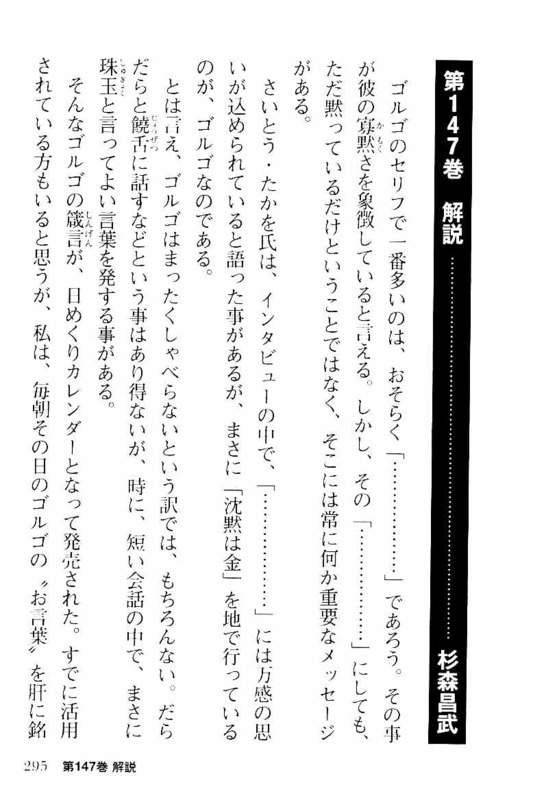 第147巻 解説……………………………………………………杉森昌武
ゴルゴのセリフで一番多いのは、おそらく「…………………」であろう。その事
が彼の寡黙さを象徴していると言える。しかし、その「…………………」にしても、
ただ黙っているだけということではなく、そこには常に何か重要なメッセージ
がある。
さいとう・たかを氏は、インタビューの中で、「…………………」には万感の思
いが込められていると語った事があるが、まさに「沈黙は金」を地で行っている
のが、ゴルゴなのである。
とは言え、ゴルゴはまったくしゃべらないという訳では、もちろんない。だら
だらと饒舌に話すなどという事はあり得ないが、時に、短い会話の中で、まさに
珠玉と言ってよい言葉を発する事がある。
そんなゴルゴの箴言が、日めくりカレンダーとなって発売された。すでに活用
されている方もいると思うが、私は、毎朝その日のゴルゴの〝お言葉〟を肝に銘
295 第147巻 解説